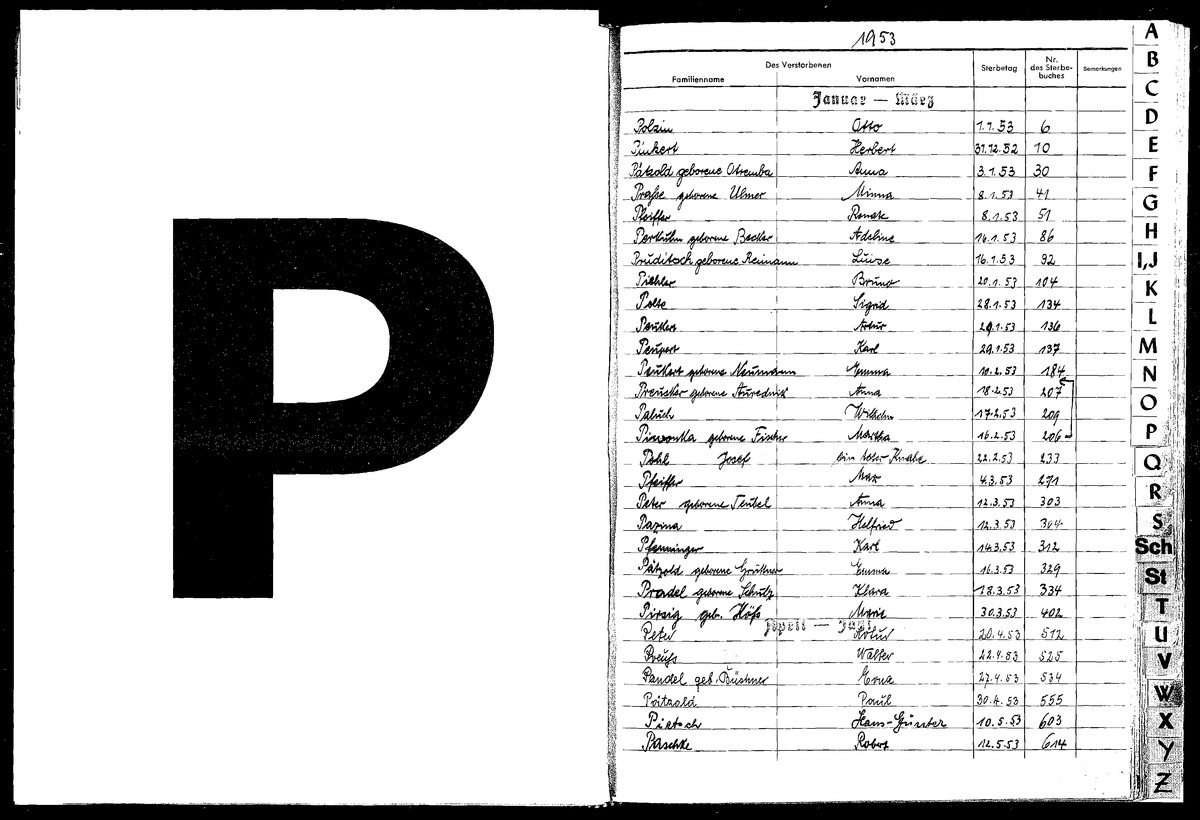 P
1953
Des Verstorbenen
Familienname Vornamen Sterbetag Nr. des Sterbebuches Bemerkungen
Januar — März
Polzin Otto 1.1.53 6
Pinkert Herbert 31.12.52 10
Pätzold geborene Otremba Anna 3.1.53 30
Praße geborene Ulmer Minna 8.1.53 41
Pfeiffer Renate 8.1.53 51
Perkuhn geborene Becker Adeline 14.1.53 86
Pruditsch geborene Reimann Luise 16.1.53 92
Pichler Bruno 20.1.53 104
Polte Sigrid 28.1.53 134
Peukert Artur 29.1.53 136
Peupert Karl 29.1.53 137
Peukert geborene Neumann Emma 10.2.53 184
Preusker geborene Anna 18.2.53 207
Paluch Wilhelm 17.2.53 209
Piwonka geborene Fischer Martha 16.2.53 206
Pohl Josef ein toter Knabe 22.2.53 233
Pfeiffer Max 4.3.53 271
Peter geborene Teubel Anna 12.3.53 303
Pazina Helfried 12.3.53 304
Pfenninger Karl 14.3.53 312
Pätzold geborene Grüttner Emma 16.3.53 329
Pradel geborene Schulz Klara 18.3.53 334
Pirsig geb. Höfs Marie 30.3.53 402
April — Juni
Peter Artur 20.4.53 512
Preuß Walter 22.4.53 525
Pandel geb. Büshner Erna 27.4.53 534
Poitzold Paul 30.4.53 555
Pietsch Hans-Günter 10.5.53 603
Paschke Robert 12.5.53 614
A
B
C
D
E
F
G
H
I,J
K
L
M
N
O
P
Q
R
S
Sch
St
T
U
V
W
X
Y
Z